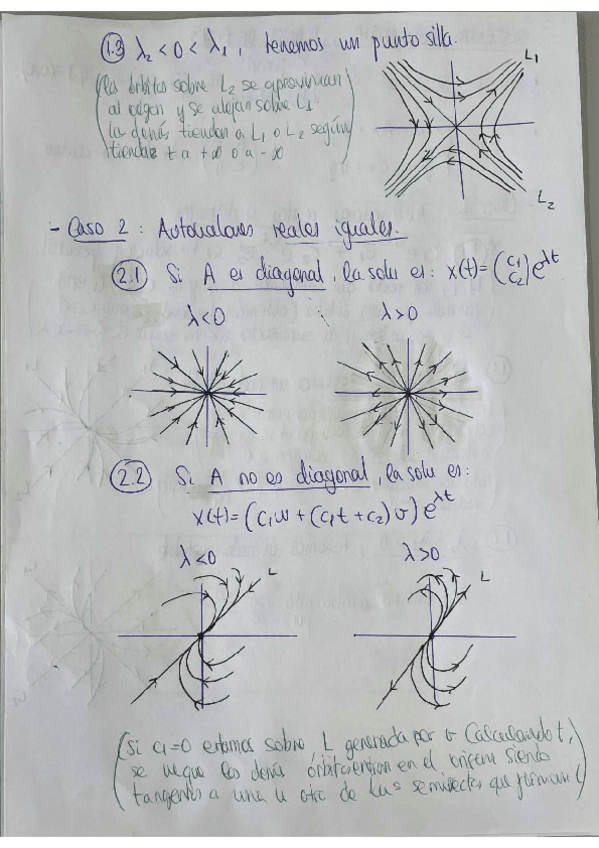 1.3 λ₂ < 0 < λ₁, tenemos un punto silla.
(las órbitas sobre L₂ se aproximan
al origen y se alejan sobre L₁.
las demás tienden a L₁ o L₂ según
tienda t a +∞ o a -∞)
L₁
L₂
- Caso 2: Autovalores reales iguales.
2.1 Si A es diagonal, la solu es: x(t) = (c₁ c₂) e^λt
λ<0 λ>0
2.2 Si A no es diagonal, la solu es:
x(t) = (c₁w + (c₁t + c₂) v) e^λt
λ<0 λ>0
L L
(Si c₁=0 estamos sobre L generada por v Calculando t,
se ve que las demás órbitas en el origen siendo
tangentes a una u otra de las semirectas que forman L)